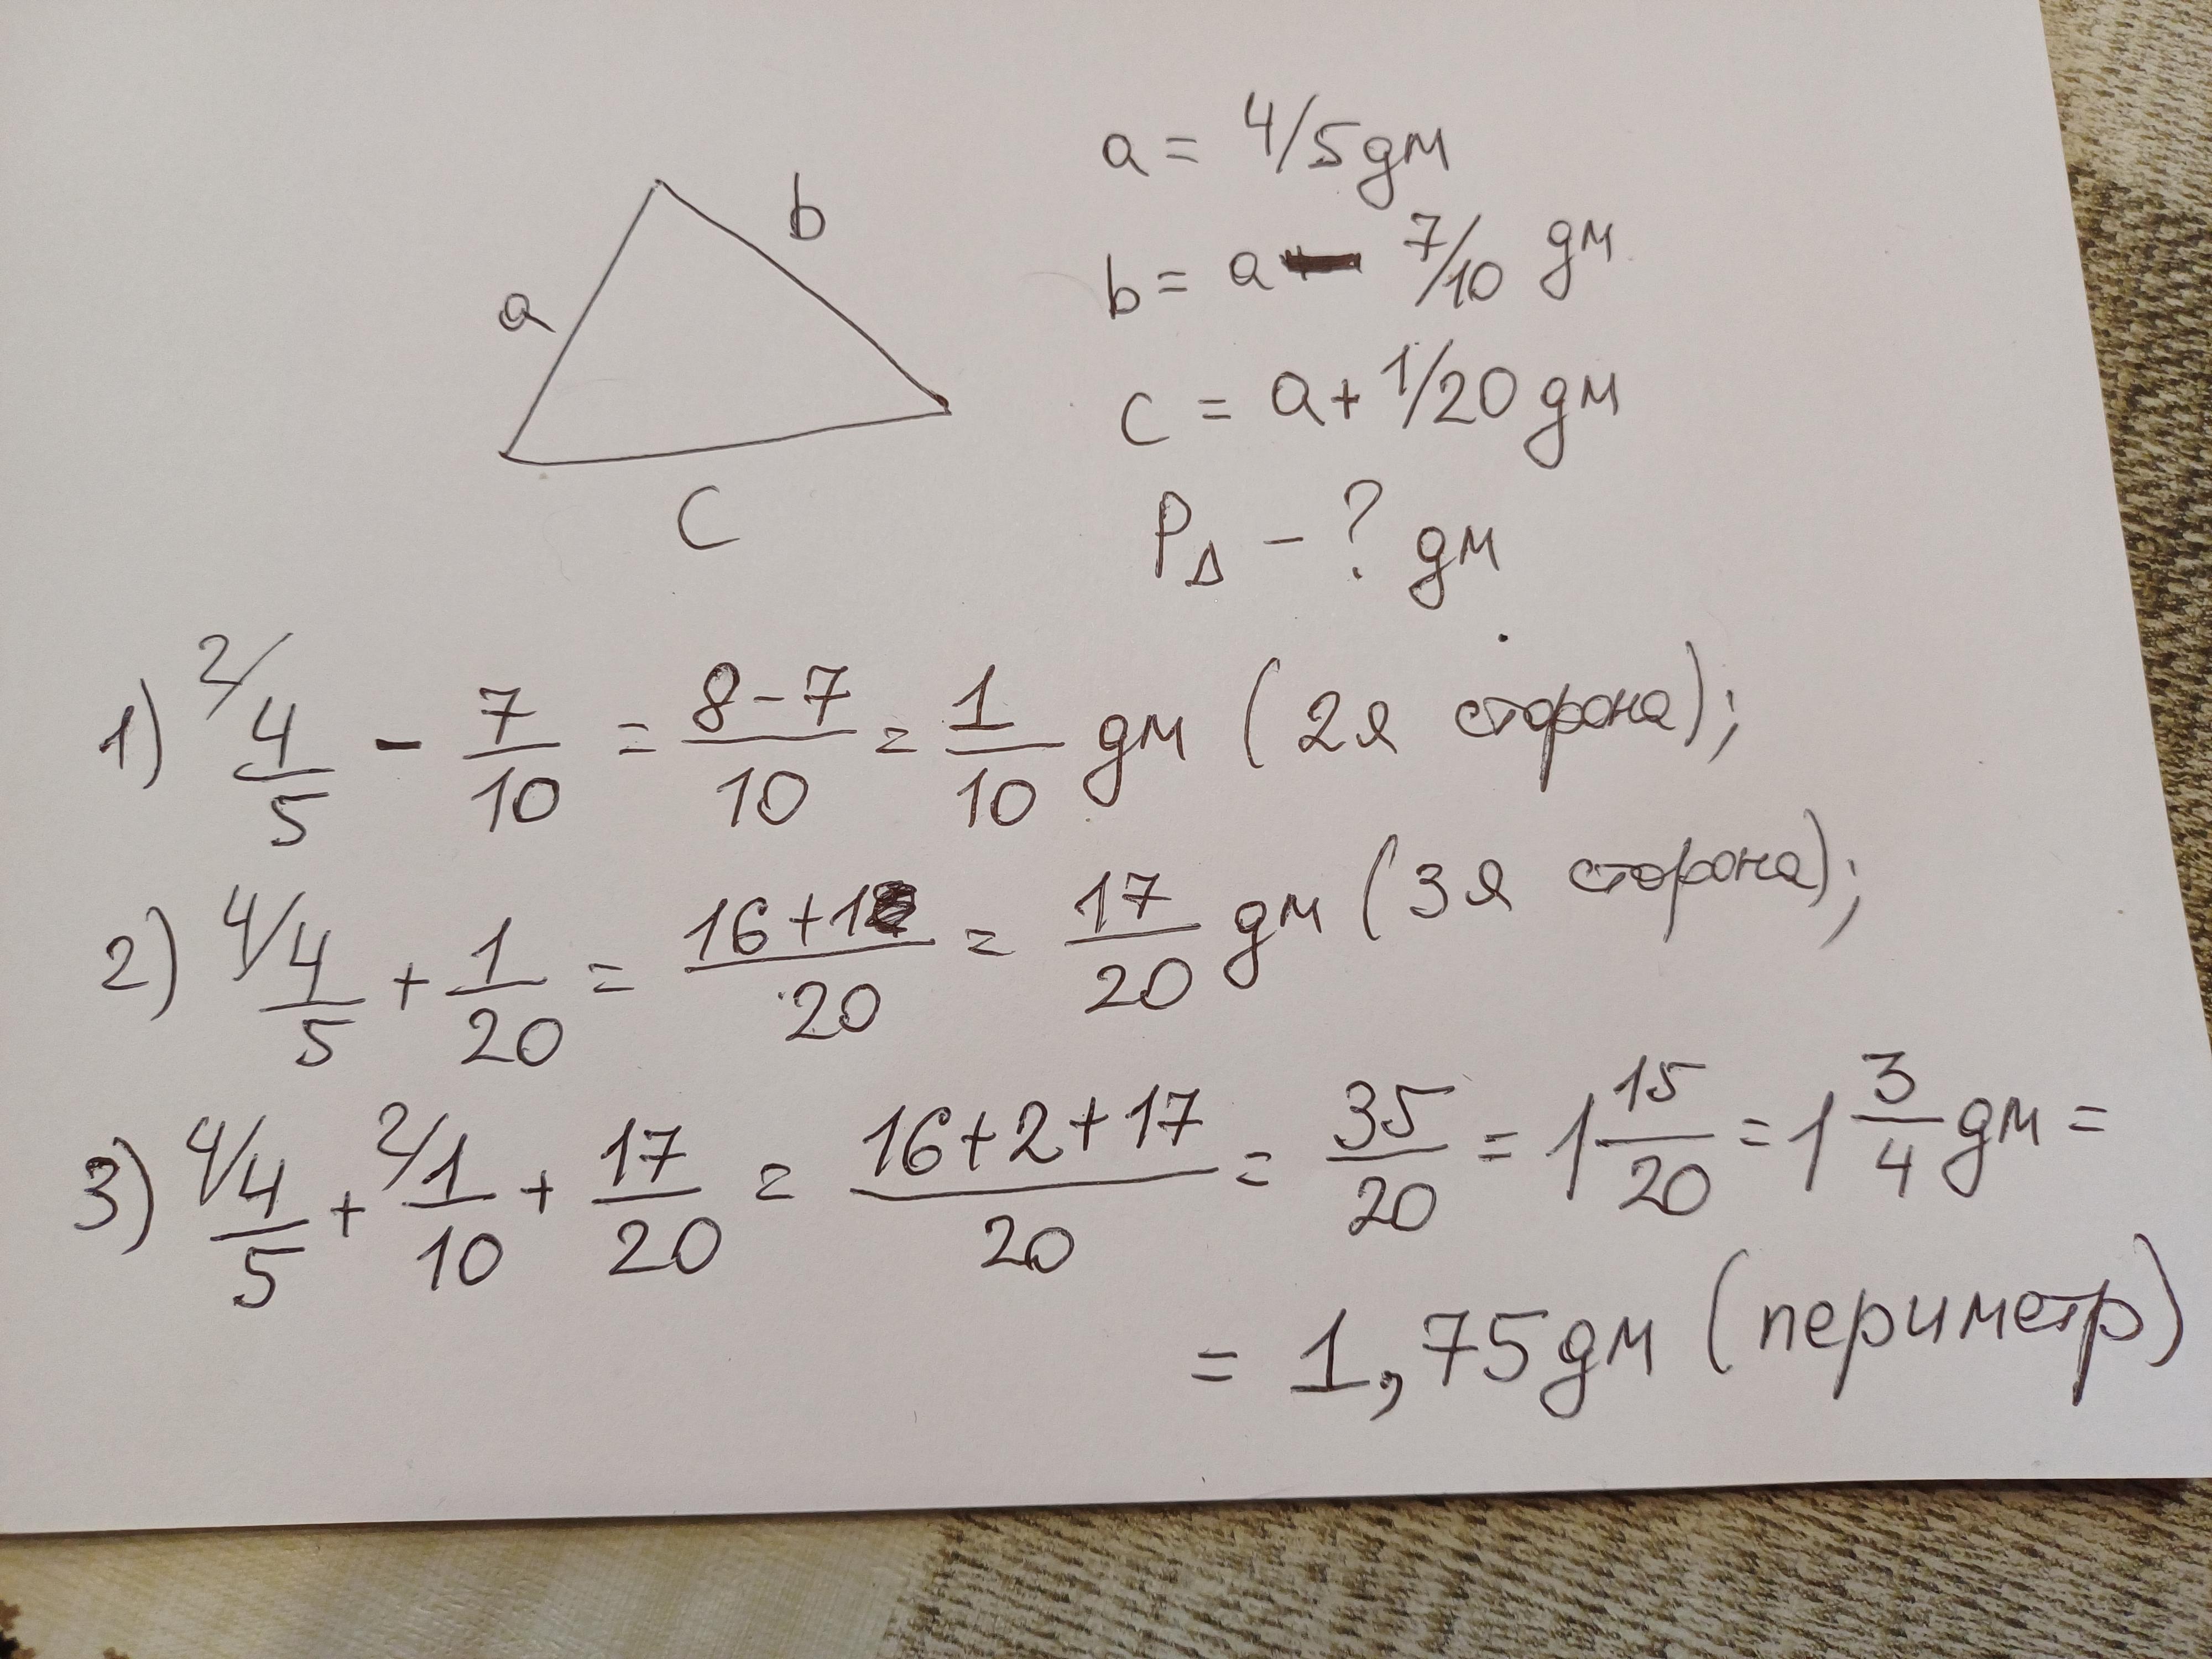 a = 4/5 дм
b
b = a - 7/10 дм
a
c = a + 1/20 дм
C
P△ - ? дм
1) 2/ 4/5 - 7/10 = 8-7/10 = 1/10 дм (2я сторона);
2) 4/ 4/5 + 1/20 = 16+1/20 = 17/20 дм (3я сторона);
3) 4/ 4/5 + 2/ 1/10 + 17/20 = 16+2+17/20 = 35/20 = 1 15/20 = 1 3/4 дм =
= 1,75 дм (периметр)